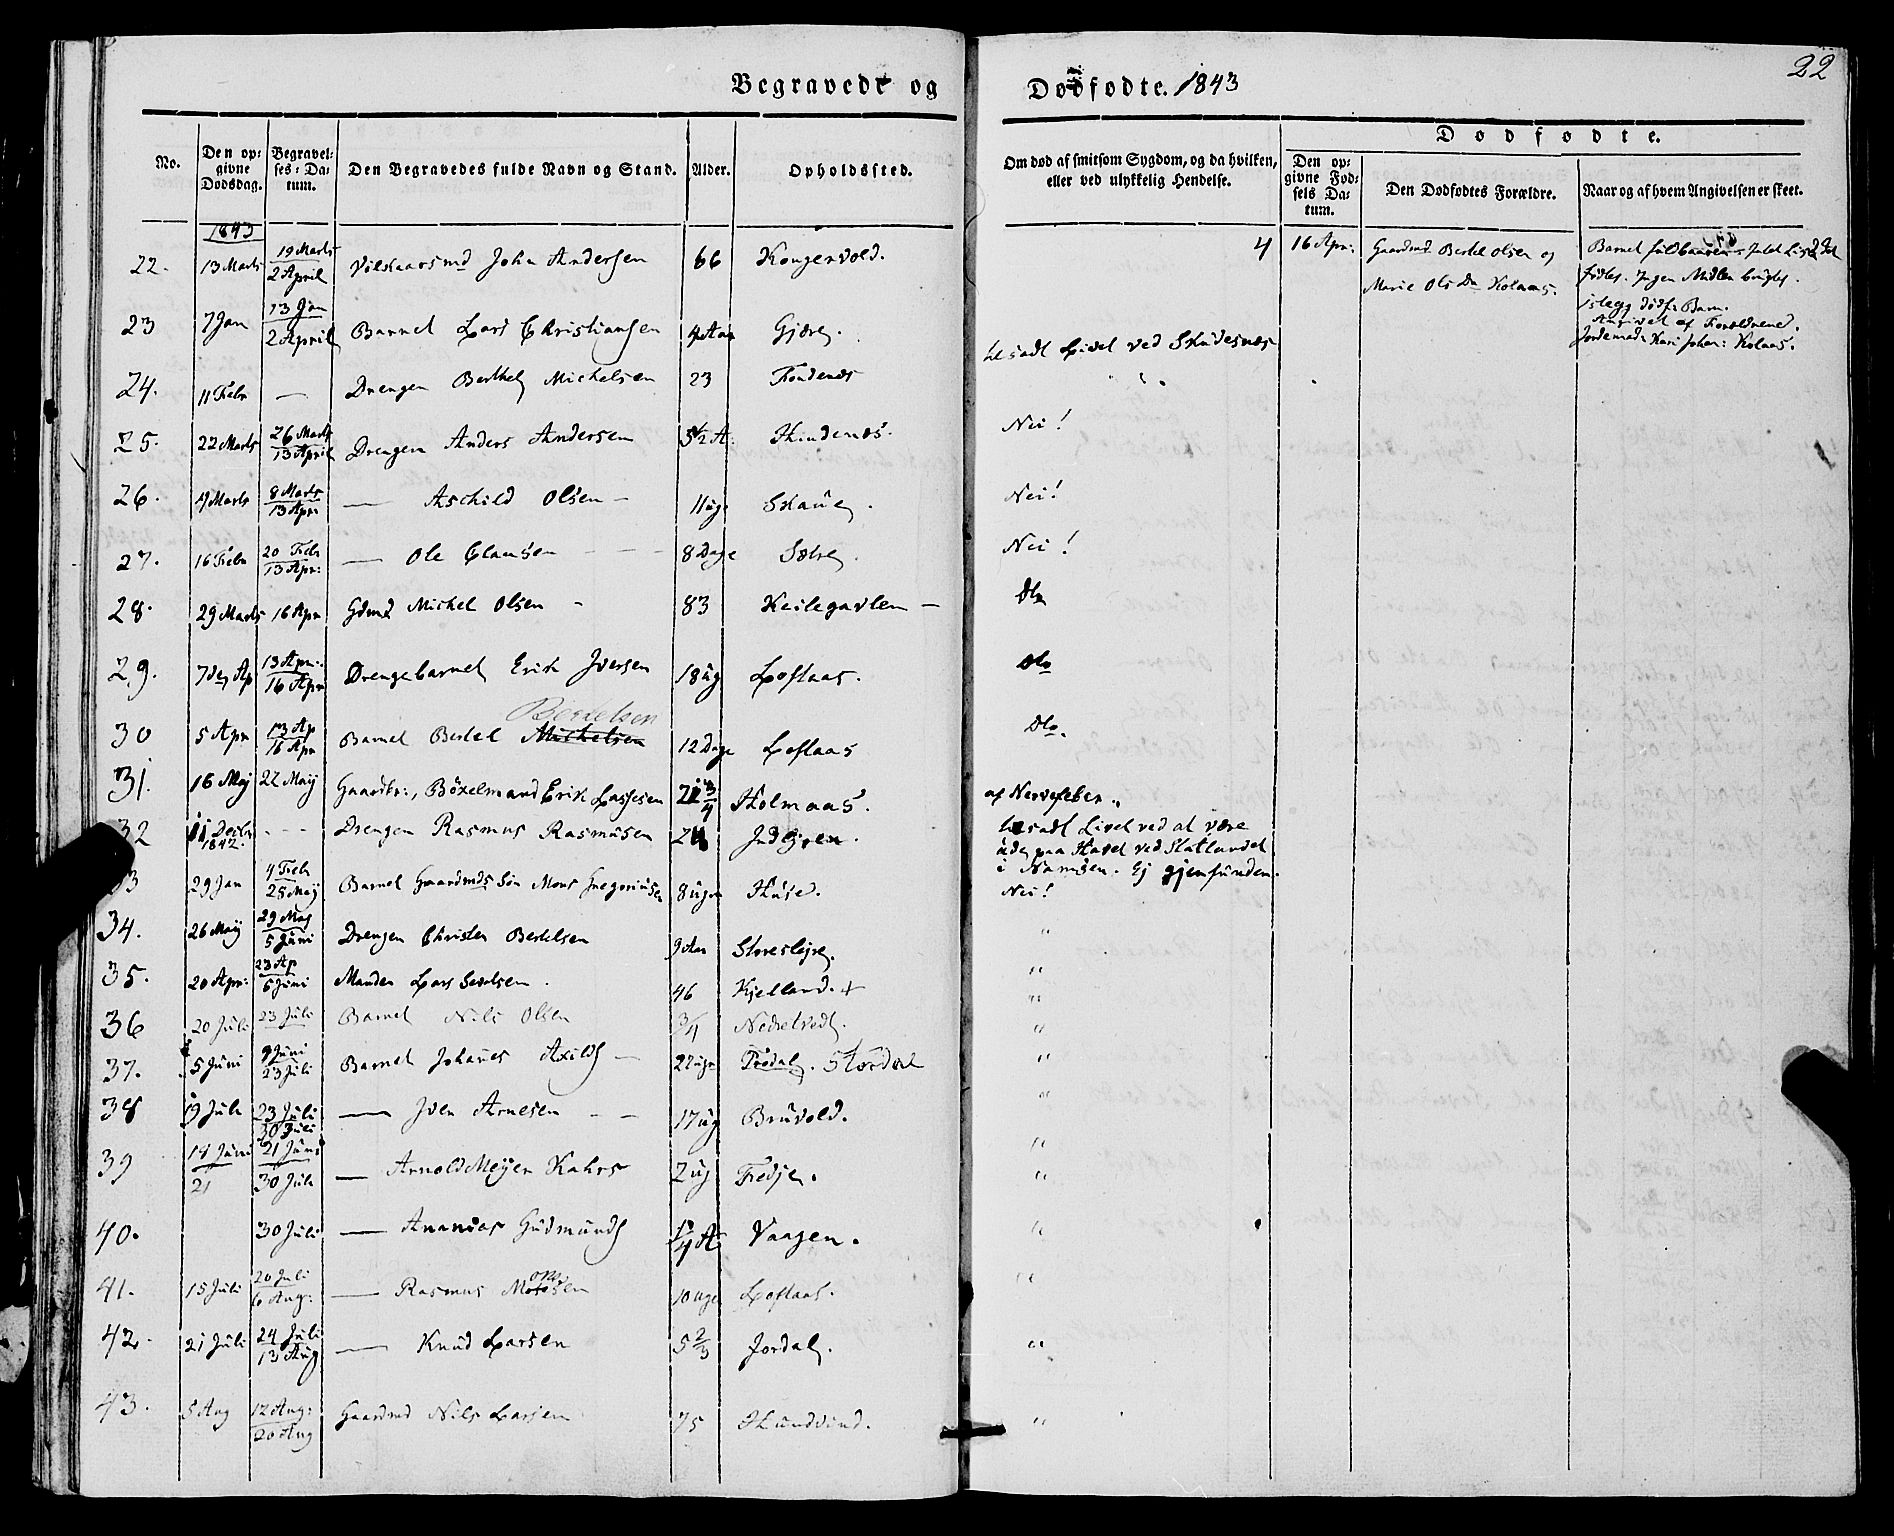 22
Begravede og Dødfødte. 1843
No.
Den opgivne Dødsdag.
Begravelses-Datum.
Den Begravedes fulde Navn og Stand.
Alder.
Opholdssted.
Om død af smitsom Sygdom, og da hvilken, eller ved ulykkelig Hendelse.
Dødfødte.
Den opgivne Fødsels Datum.
Den Dødfødtes Forældre.
Naar og af hvem Angivelsen er skeet.
1843
22. 13 Marts 19 Marts 2 April John Andersen 66 Kongervold.
4 16 Apr: Gaardmd Bertel Olsen og
Marie Olsdr Kolaas.
Barnet
fødtes. Ingen Midler brugtes.
Barn.
Angivet af Forældrene.
Jordemod: Kari Johan: Kolaas.
23 7 Jan 13 Jan 2 April Barnet Lars Christiansen 4 Aar Gjære.
24. 11 Febr — Drengen Berthel Michelsen 23 Tondenæs
Livet ved Skudesnæs
25. 22 Marts 26 Marts 13 April Drengen Anders Andersen 5 1/2 A: Hindenæs. Nei!
26. 4 Marts 8 Marts 13 Apr — Aschild Olsen — 11 uge Skaue. Nei!
27. 16 Febr 20 Febr 13 Apr: — Ole Clausen 8 Dage Sætre. Nei!
28. 29 Marts 16 Apr Gdmd Michel Olsen 83 Keilegavlen — Do
29. 7de Ap 13 Apr. 16 Apr Drengebarnet Erik Iversen 18 ug Loftaas. Do
30 5 Apr 13 Ap 16 Apr Barnet Bertel Michelsen Bertelsen 12 Dage Loftaas Do.
31. 16 Maj 22 Maij Gaardbr:, Böxelmand Erik Lassesen 71 3/4 Holmaas. af Nervefeber.
32 11 Decbr 1842. - - - Drengen Rasmus Rasmusen 24 Indöjren.
Livet ved at være
ude paa Havet ved Slatlandet
i Namsen. Ej gjenfunden.
33 29 Jan 4 Febr 25 Maij Barnet Gaardmds Søn Mons Gregoriusen 8 ugr Huse. Nei!
34. 26 Maij 29 Maj 5 Juni Drengen Christen Bertelsen 9 Aar "
35. 20 Apr: 23 Ap 5 Juni Manden Lars Sevalsen. 46 Kjelland. + "
36 20 Juli 23 Juli Barnet Nils Olsen 3/4 Nedretvedt. "
37. 5 Juni 9 Juni 23 Juli Barnet Johanes Axilds — 22 ugr . Stordal "
38 19 Juli 23 Juli 30 Juli — Iver Arnesen - - 17 ug Bruvold. "
39 18 Juni 21 21 Juni 30 Juli — Arnold Meyer Kahrs 2 ug Fedje. "
40. 30 Juli — Ananias Gudmunds 1 1/4 A Vaagen. "
41. 15 Juli 20 Juli 6 Aug: — Rasmus 10 uger Loftaas. "
42. 21 Juli 24 Juli 13 Aug — Knud Larsen 5 2/3 Jordal. "
43. 5 Aug 12 Aug: 20 Aug Gaardmd Nils Larsen 75 Hundvind. "